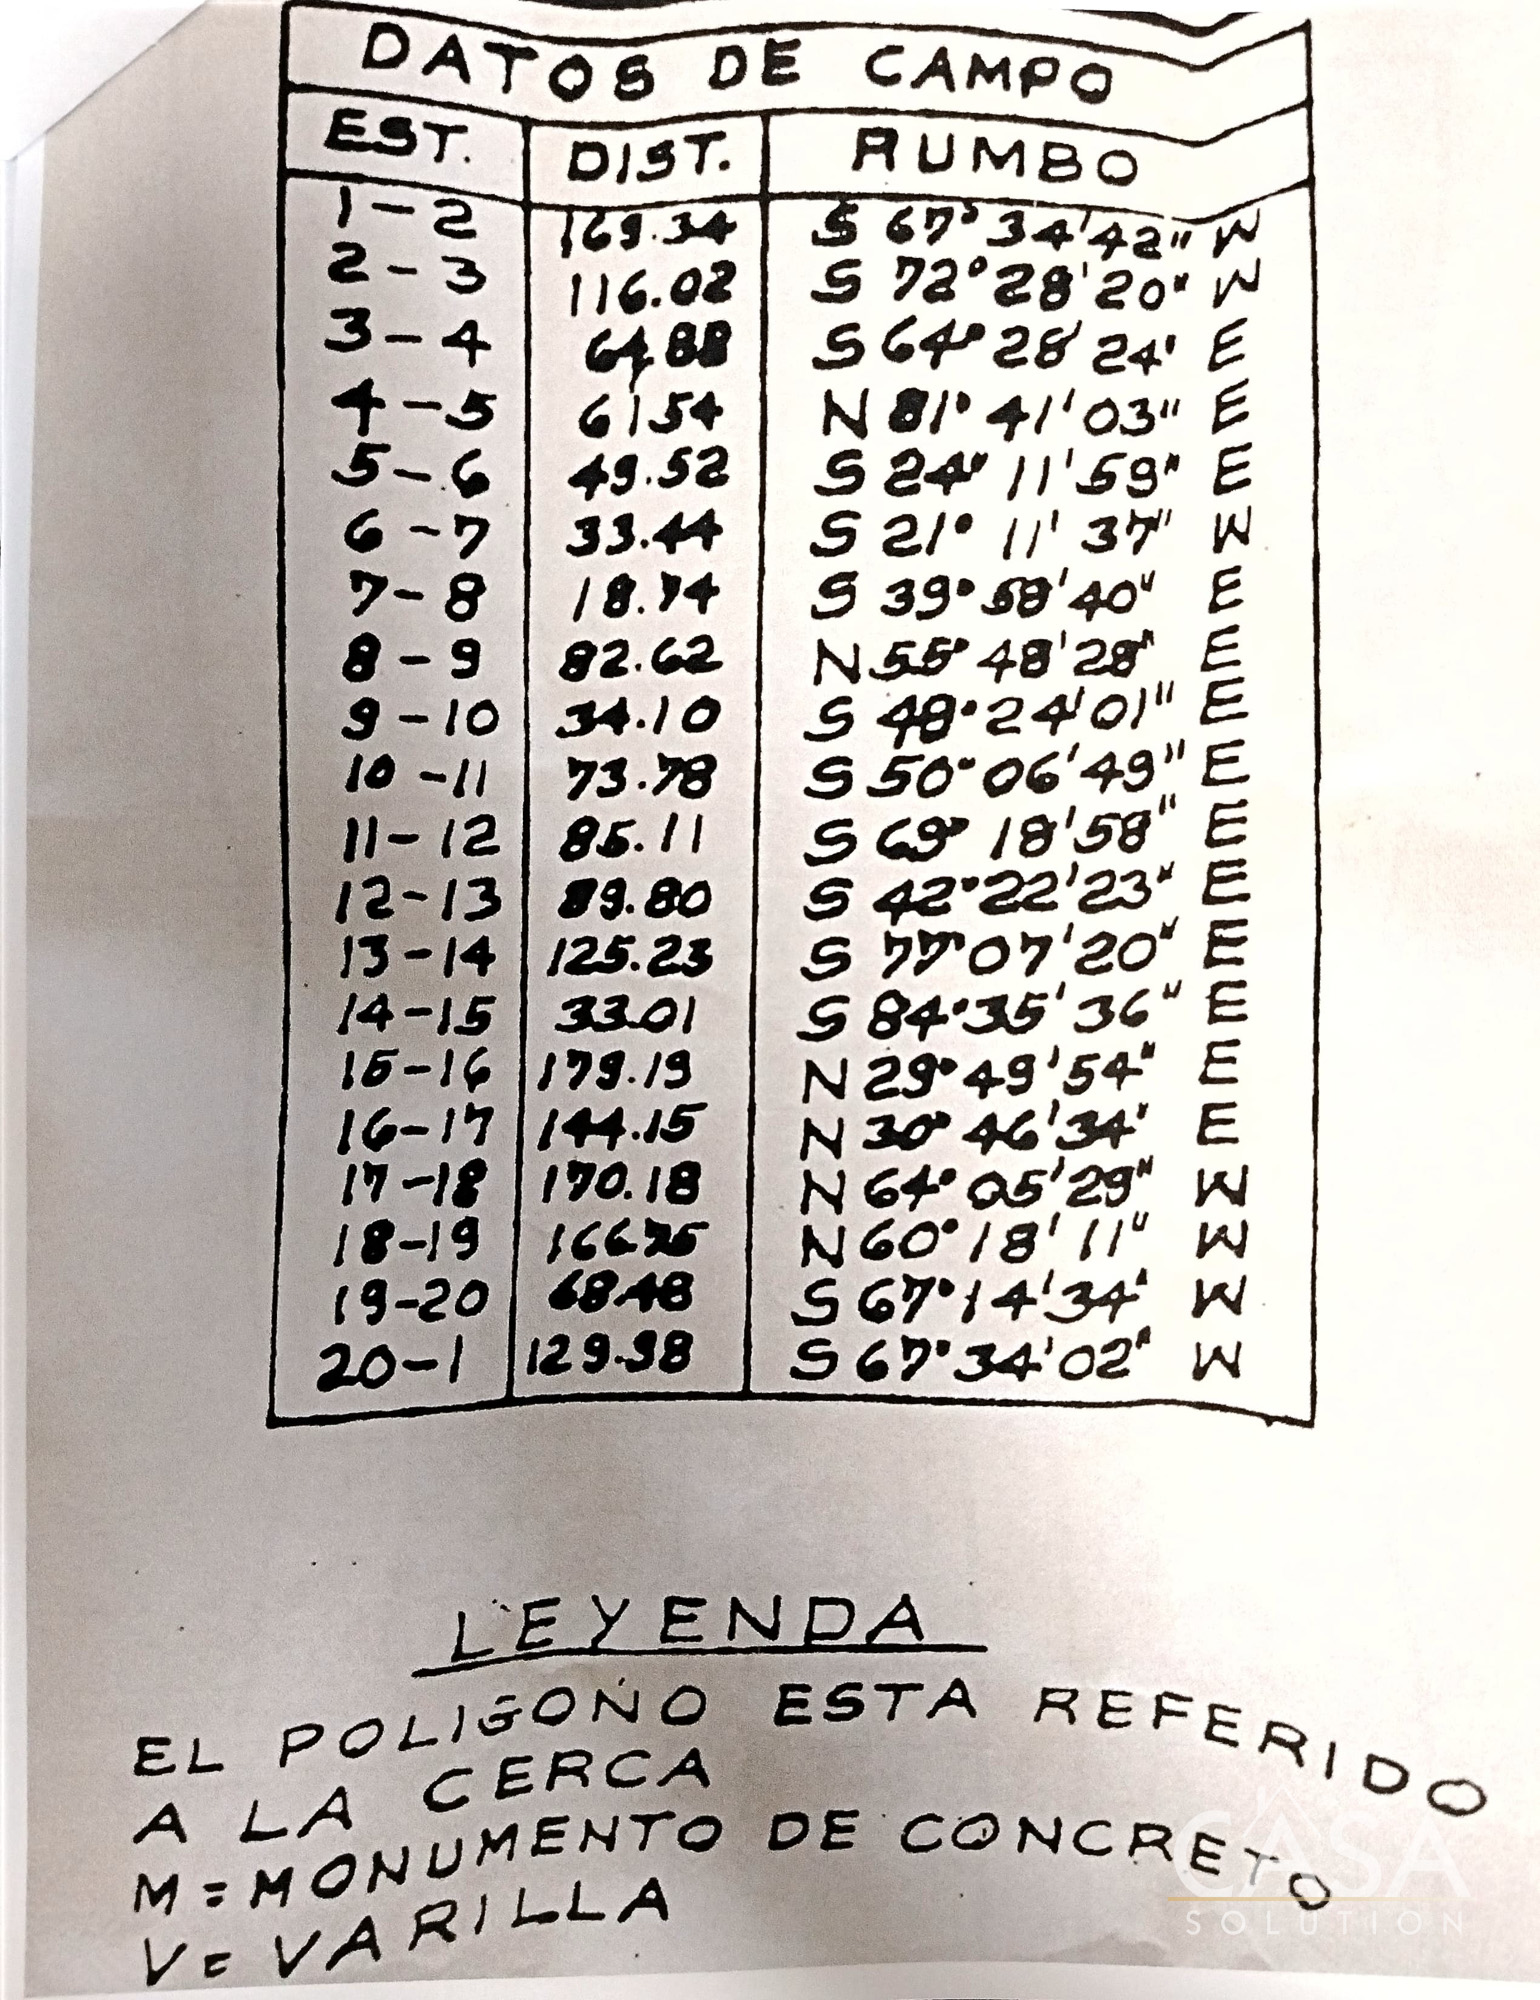 DATOS DE CAMPO
EST. DIST. RUMBO
1-2 169.34 S 67° 34' 42" W
2-3 116.02 S 72° 28' 20" W
3-4 64.88 S 64° 28' 24' E
4-5 61.54 N 81° 41' 03" E
5-6 49.52 S 24° 11' 59" E
6-7 33.44 S 21° 11' 37" W
7-8 18.74 S 39° 58' 40" E
8-9 82.62 N 55° 48' 28" E
9-10 34.10 S 48° 24' 01" E
10-11 73.78 S 50° 06' 49" E
11-12 85.11 S 69° 18' 58" E
12-13 89.80 S 42° 22' 23" E
13-14 125.23 S 77° 07' 20" E
14-15 33.01 S 84° 35' 36" E
15-16 179.19 N 29° 49' 54" E
16-17 144.15 N 30° 46' 34' E
17-18 170.18 N 64° 05' 29" W
18-19 166.75 N 60° 18' 11" W
19-20 68.48 S 67° 14' 34' W
20-1 129.98 S 67° 34' 02" W
LEYENDA
EL POLIGONO ESTA REFERIDO
A LA CERCA
M = MONUMENTO DE CONCRETO
V = VARILLA
CASA
SOLUTION